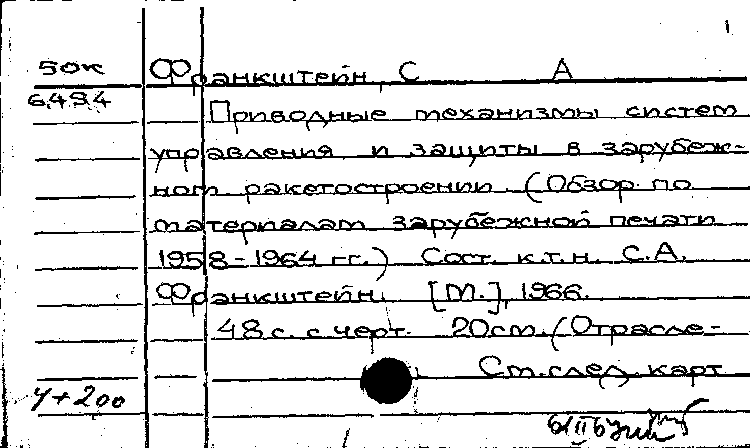 1
50к Франкштейн, С А
6494 Приводные механизмы систем
управления и защиты в зарубеж-
ном ракетостроении (Обзор по
материалам зарубежной печати
1958-1964 гг.) Сост. к.т.н. С.А.
Франкштейн. [М.], 1966.
48 с. с черт. 20см. (Отрасле-
См. след. карт
4+200